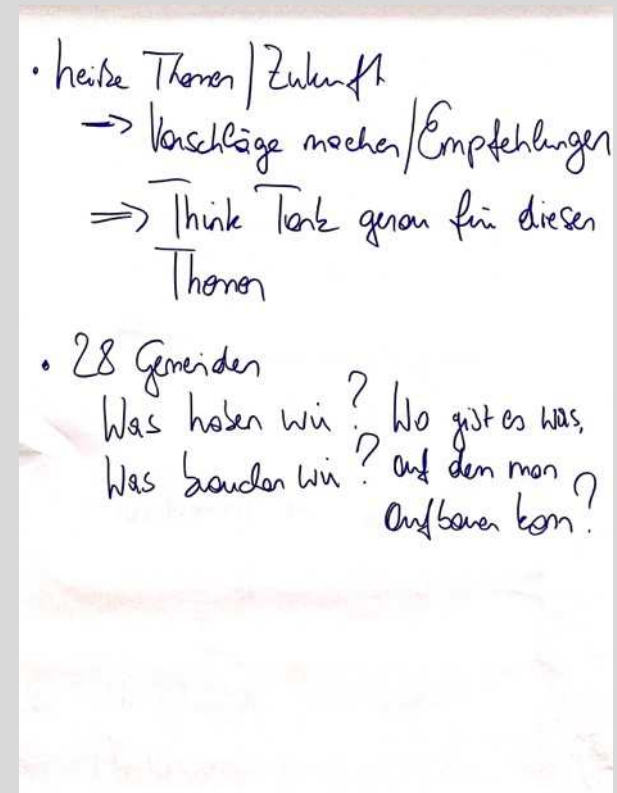 • heiße Themen / Zukunft
→ Vorschläge machen / Empfehlungen
⇒ Think Tank genau für diesen
Themen
• 28 Gemeinden
Was haben wir? Wo gibt es was,
Was brauchen wir? auf dem man
aufbauen kann?